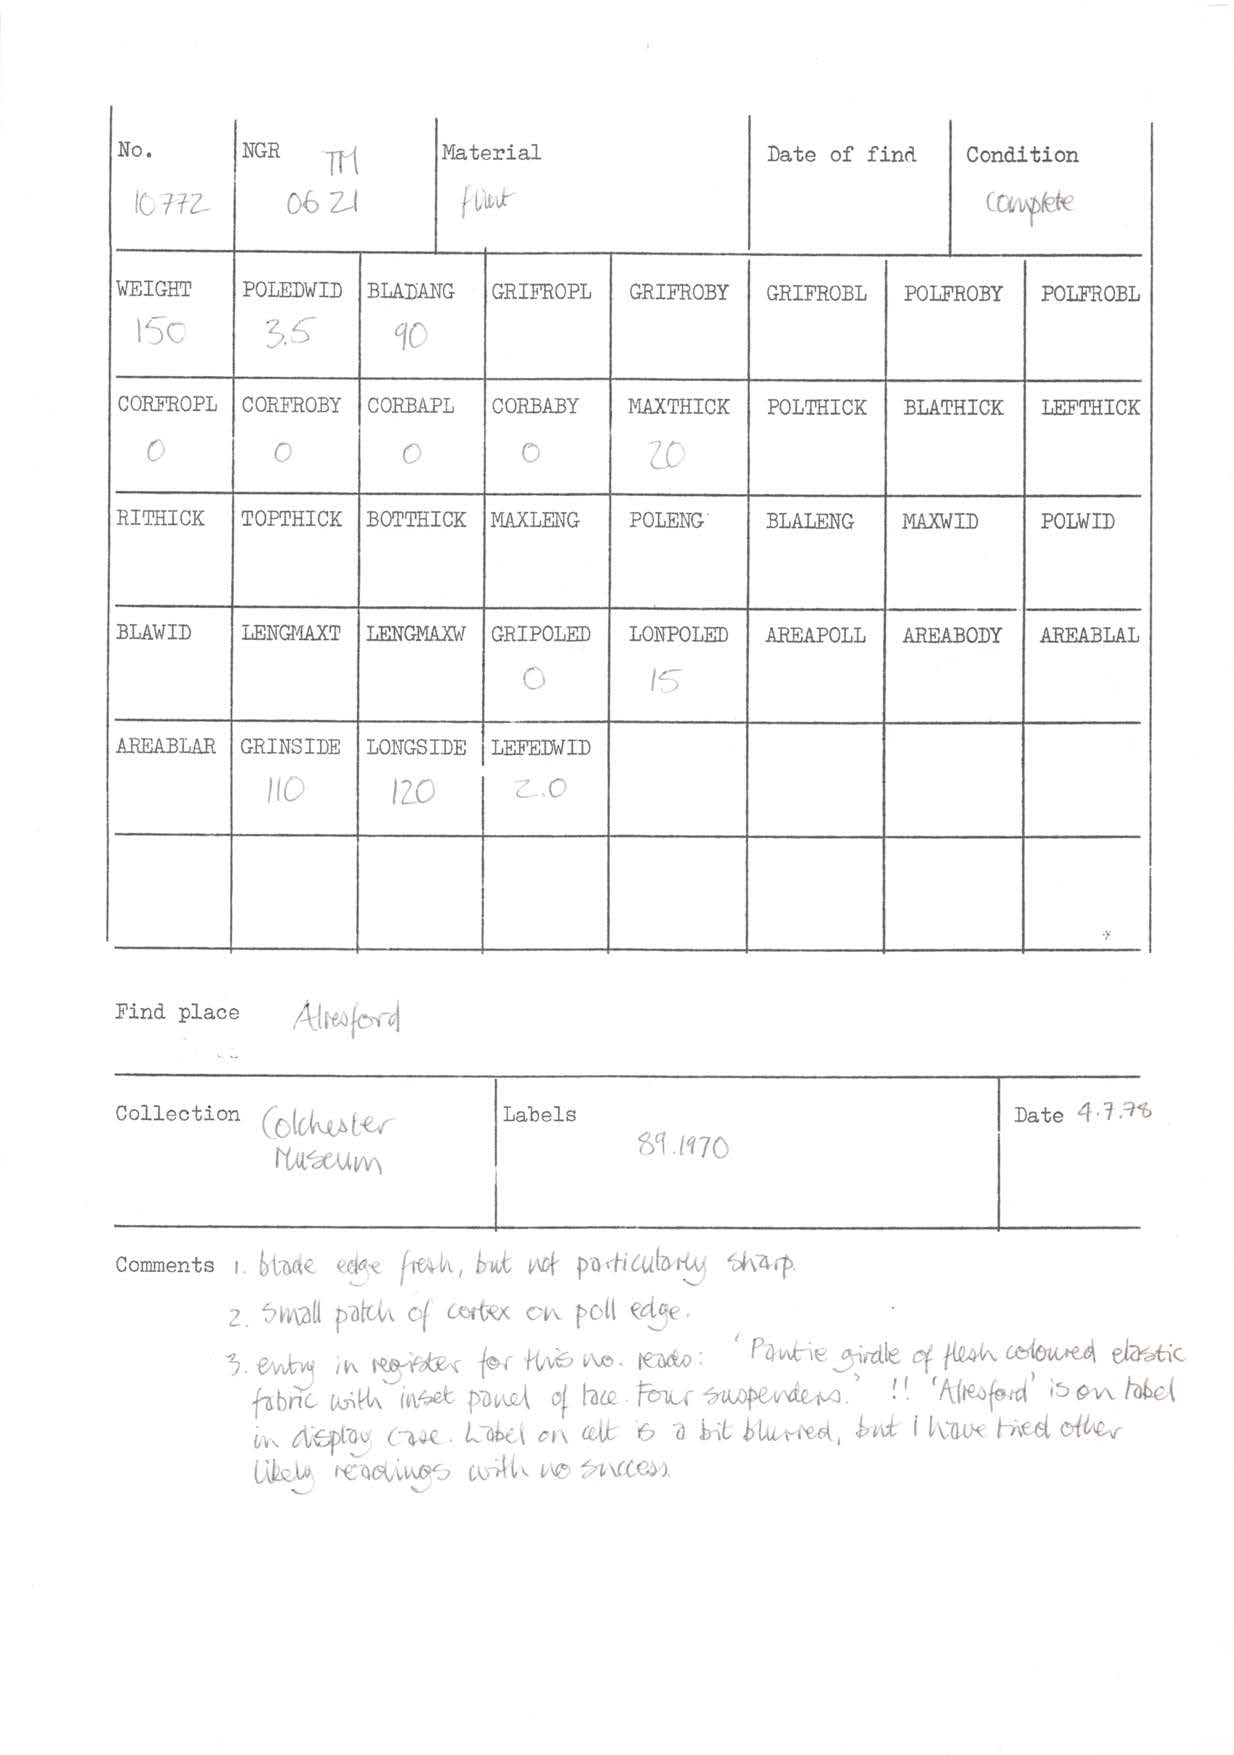 No. NGR TM Material Date of find Condition
10772 06 21 flint complete
WEIGHT POLEDWID BLADANG GRIFROPL GRIFROBY GRIFROBL POLFROBY POLFROBL
150 3.5 90
CORFROPL CORFROBY CORBAPL CORBABY MAXTHICK POLTHICK BLATHICK LEFTHICK
0 0 0 0 20
RITHICK TOPTHICK BOTTHICK MAXLENG POLENG BLALENG MAXWID POLWID
BLAWID LENGMAXT LENGMAXW GRIPOLED LONPOLED AREAPOLL AREABODY AREABLAL
0 15
AREABLAR GRINSIDE LONGSIDE LEFEDWID
110 120 2.0
Find place Alresford
Collection Colchester Labels Date 4.7.78
Museum 89.1970
Comments 1. blade edge fresh, but not particularly sharp.
2. Small patch of cortex on poll edge.
3. entry in register for this no. reads: 'Pantie girdle of flesh coloured elastic
fabric with inset panel of lace. Four suspenders.' !! 'Alresford' is on label
in display case. Label on celt is a bit blurred, but I have tried other
likely readings with no success.